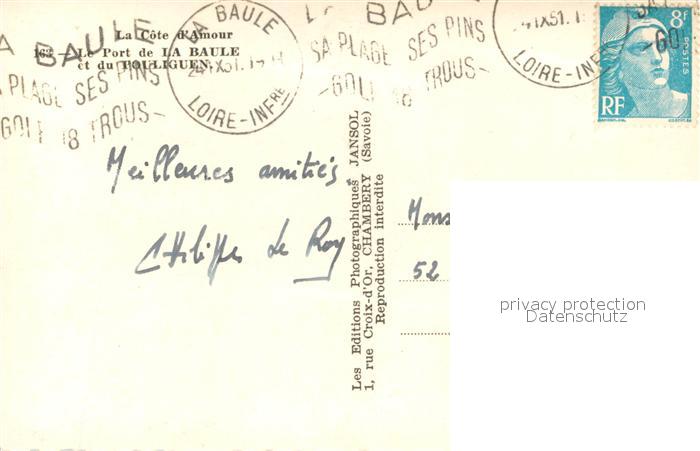 La Côte d'Amour
163 - Le Port de LA BAULE
et du POULIGUEN
LA BAULE
SA PLAGE SES PINS
GOLF 18 TROUS
LA BAULE
LOIRE-INFRE
LA BAULE
SA PLAGE SES PINS
-GOLF 18 TROUS-
LOIRE-INF
8F
POSTES
RF
Meilleures amitiés
Philippe Le Roy
Les Editions Photographiques JANSOL
1, rue Croix-d'Or, CHAMBERY (Savoie)
Reproduction interdite
Mons
52
privacy protection
Datenschutz